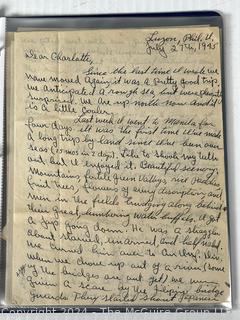 Luzon, Phil. I.
July 27th, 1945
Dear Charlotte,
Since the last time I wrote we
have moved again. It was a pretty good trip,
we anticipated a rough sea but were pleasantly
surprised. We are up north now and it
is a little cooler.
Last week I went to Manila for
four days. It was the first time I've made
a long trip by land since I've been over
seas (75 miles in 2 days). Like to shook my teeth
out but I enjoyed it. Beautiful scenery,
Mountains, little green valleys,
fruit trees, flowers of every description and
men in the fields trudging along behind
the great, lumbering water buffalo. I got
a Jap going down. He was a straggler
alone, starved, unarmed and half naked.
We turned him over to an
when we drove up out of a ravine (some
of the bridges are out yet) we were
given a scare by the Filipino bridge
guards. They started shouting Japanese
© 2024 - McGuire Group